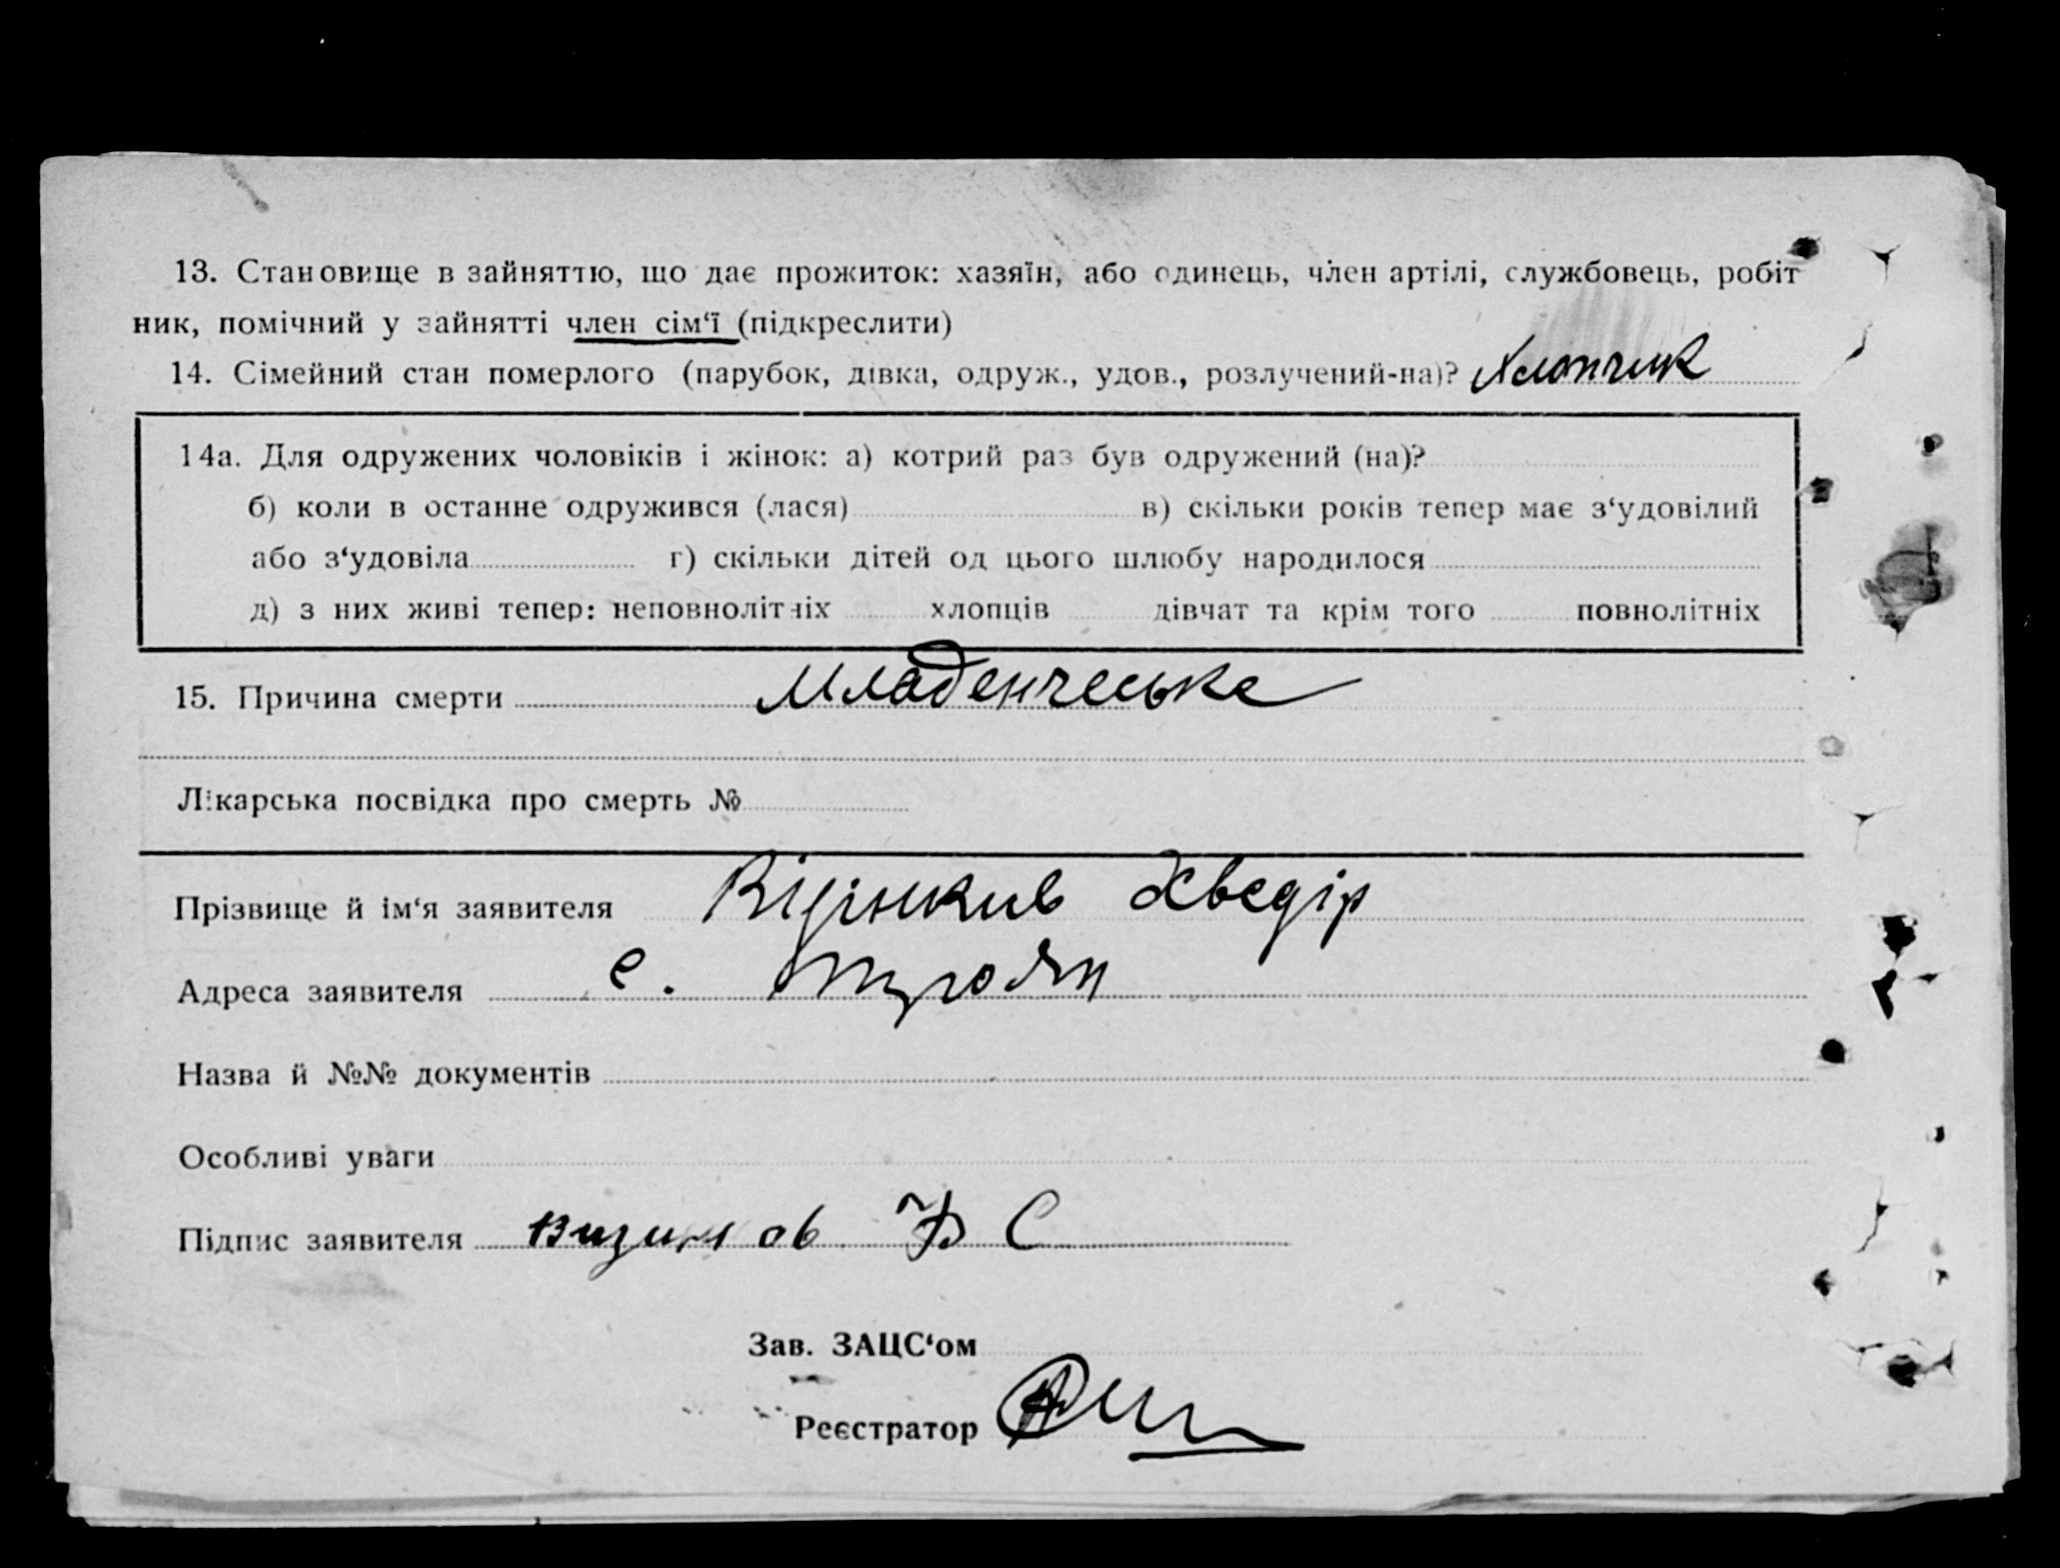 13. Становище в зайняттю, що дає прожиток: хазяїн, або одинець, член артілі, службовець, робіт
ник, помічний у зайнятті член сім‘ї (підкреслити)
14. Сімейний стан померлого (парубок, дівка, одруж., удов., розлучений-на)? Хлопчик
14а. Для одружених чоловіків і жінок: а) котрий раз був одружений (на)?
б) коли в останнє одружився (лася) в) скільки років тепер має з‘удовілий
або з‘удовіла г) скільки дітей од цього шлюбу народилося
д) з них живі тепер: неповнолітніх хлопців дівчат та крім того повнолітніх
15. Причина смерти Младенческе
Лікарська посвідка про смерть №
Прізвище й ім‘я заявителя Хведір
Адреса заявителя с. Троян
Назва й №№ документів
Особливі уваги
Підпис заявителя Ф С
Зав. ЗАЦС‘ом
Реєстратор